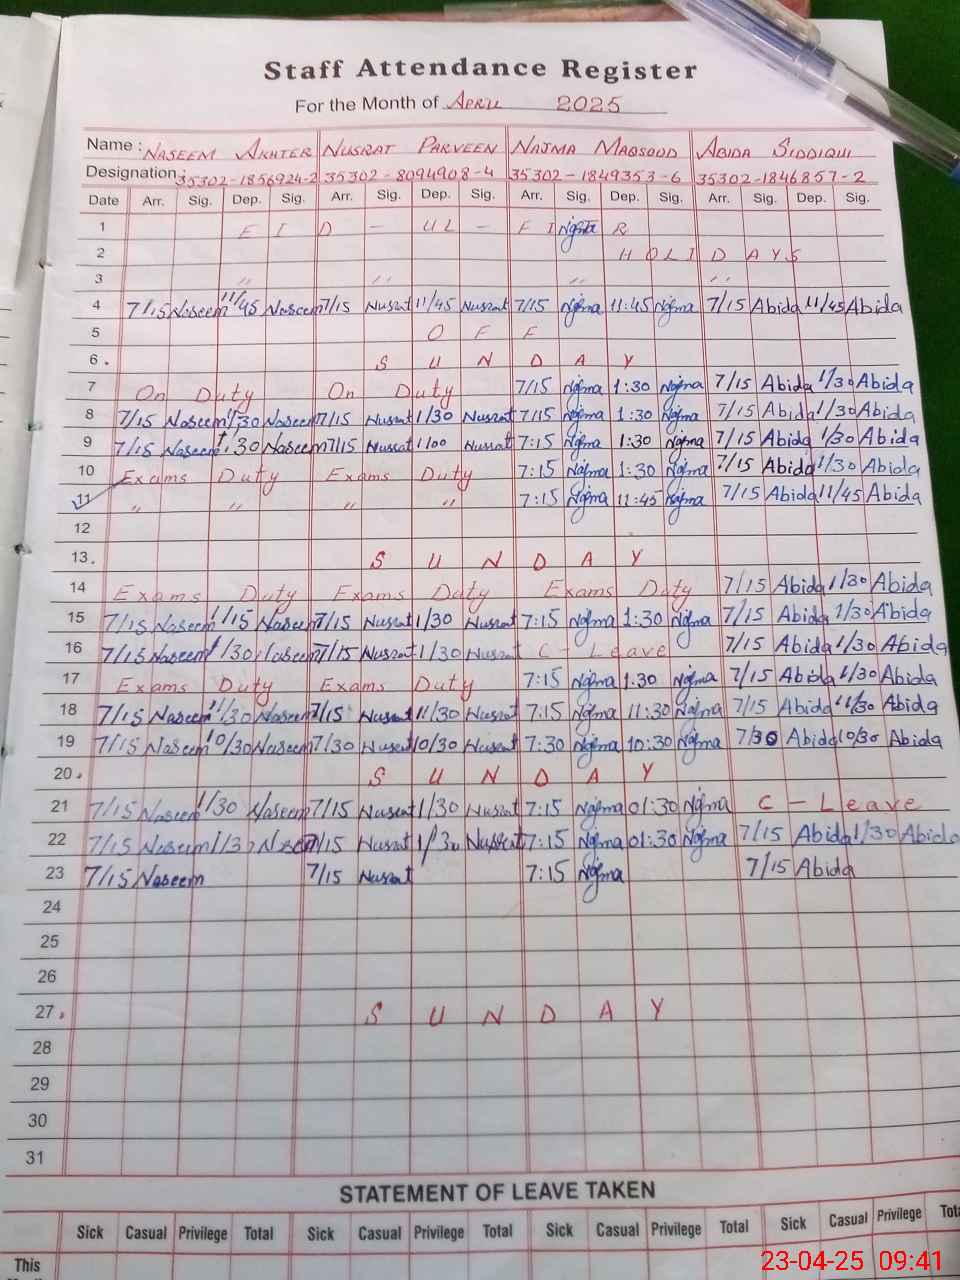 Staff Attendance Register
For the Month of APRIL 2025
Name : NASEEM AKHTER NUSRAT PARVEEN NAJMA MAQSOOD ABIDA SIDDIQUI
Designation : 35302-1856924-2 35302-8094908-4 35302-1849353-6 35302-1846857-2
Date Arr. Sig. Dep. Sig. Arr. Sig. Dep. Sig. Arr. Sig. Dep. Sig. Arr. Sig. Dep. Sig.
1 EID - UL - FITR
2 HOLIDAYS
3 " " " "
4 7/15 Naseem 11/45 Naseem 7/15 Nusrat 11/45 Nusrat 7/15 Najma 11:45 Najma 7/15 Abida 11/45 Abida
5 OFF
6. SUNDAY
7 On Duty On Duty 7/15 Najma 1:30 Najma 7/15 Abida 1/30 Abida
8 7/15 Naseem 1/30 Naseem 7/15 Nusrat 1/30 Nusrat 7/15 Najma 1:30 Najma 7/15 Abida 1/30 Abida
9 7/15 Naseem 1/30 Naseem 7/15 Nusrat 1/00 Nusrat 7:15 Najma 1:30 Najma 7/15 Abida 1/30 Abida
10 Exams Duty Exams Duty 7:15 Najma 1:30 Najma 7/15 Abida 1/30 Abida
11 " " " " 7:15 Najma 11:45 Najma 7/15 Abida 11/45 Abida
12
13. SUNDAY
14 Exams Duty Exams Duty Exams Duty 7/15 Abida 1/30 Abida
15 7/15 Naseem 1/15 Naseem 7/15 Nusrat 1/30 Nusrat 7:15 Najma 1:30 Najma 7/15 Abida 1/30 Abida
16 7/15 Naseem 1/30 Naseem 7/15 Nusrat 1/30 Nusrat C - Leave 7/15 Abida 1/30 Abida
17 Exams Duty Exams Duty 7:15 Najma 1:30 Najma 7/15 Abida 1/30 Abida
18 7/15 Naseem 11/30 Naseem 7/15 Nusrat 11/30 Nusrat 7:15 Najma 11:30 Najma 7/15 Abida 11/30 Abida
19 7/15 Naseem 10/30 Naseem 7/30 Nusrat 10/30 Nusrat 7:30 Najma 10:30 Najma 7/30 Abida 10/30 Abida
20. SUNDAY
21 7/15 Naseem 1/30 Naseem 7/15 Nusrat 1/30 Nusrat 7:15 Najma 01:30 Najma C - Leave
22 7/15 Naseem 1/30 Naseem 7/15 Nusrat 1/30 Nusrat 7:15 Najma 01:30 Najma 7/15 Abida 1/30 Abida
23 7/15 Naseem 7/15 Nusrat 7:15 Najma 7/15 Abida
24
25
26
27. SUNDAY
28
29
30
31
STATEMENT OF LEAVE TAKEN
Sick Casual Privilege Total Sick Casual Privilege Total Sick Casual Privilege Total Sick Casual Privilege
This
23-04-25 09:41